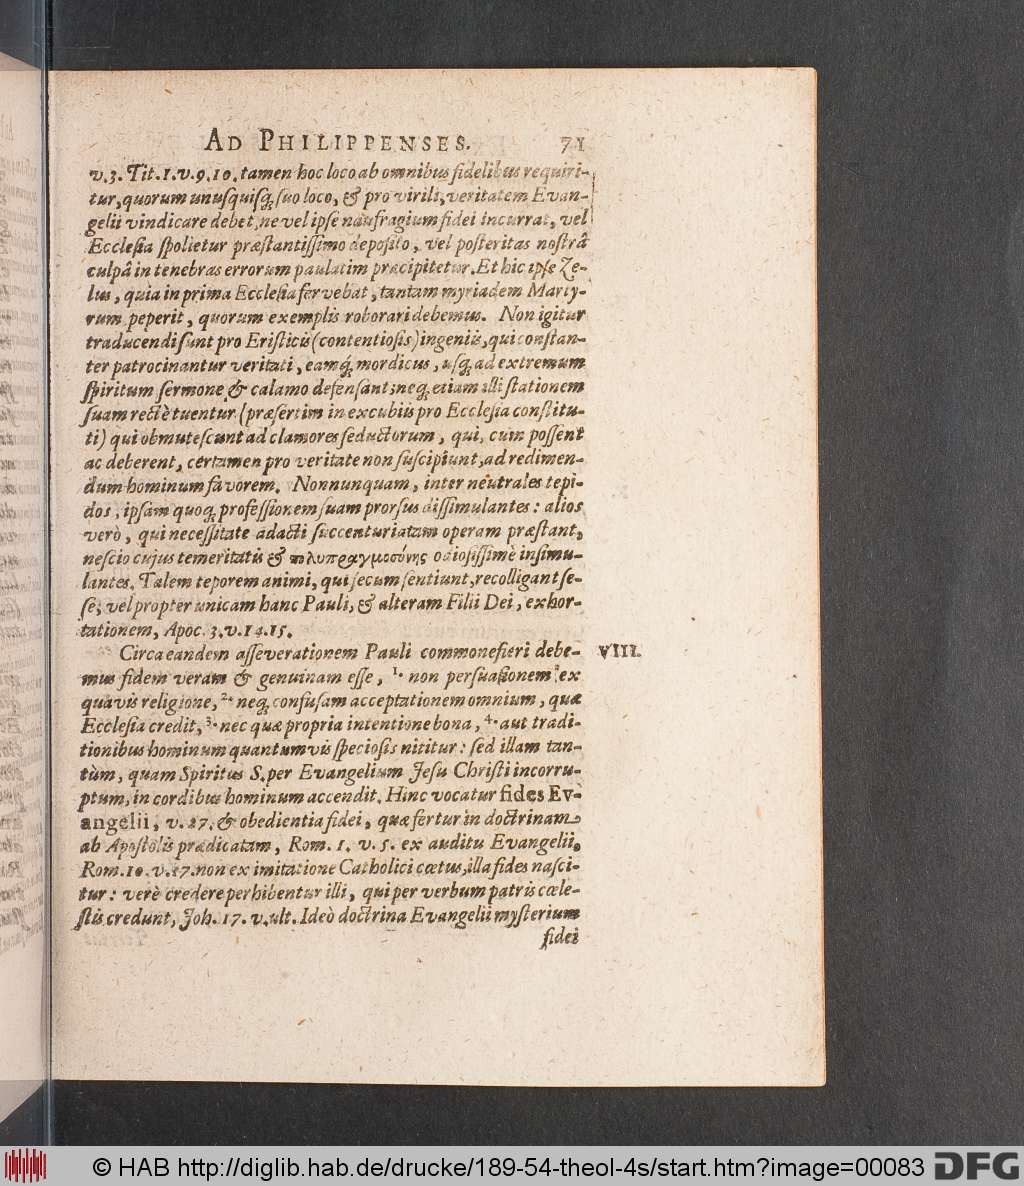 AD PHILIPPENSES. 71
v.3. Tit.1.v.9.10. tamen hoc loco ab omnibus fidelibus requiri-
tur, quorum unusquisq; suo loco, & pro virili, veritatem Evan-
gelii vindicare debet, ne vel ipse naufragium fidei incurrat, vel
Ecclesia spolietur præstantissimo deposito, vel posteritas nostrâ
culpâ in tenebras errorum paulatim præcipitetur. Et hic ipse Ze-
lus, quia in prima Ecclesia fervebat, tantam myriadem Marty-
rum peperit, quorum exemplis roborari debemus. Non igitur
traducendi sunt pro Eristicis (contentiosis) ingeniis, qui constan-
ter patrocinantur veritati, eamq; mordicus, usq; ad extremum
spiritum sermone & calamo defensant; neq; etiam illi stationem
suam rectè tuentur (præsertim in excubiis pro Ecclesia constitu-
ti) qui obmutescunt ad clamores seductorum, qui, cum possent
ac deberent, certamen pro veritate non suscipiunt, ad redimen-
dum hominum favorem. Nonnunquam, inter neutrales tepi-
dos, ipsam quoq; professionem suam prorsus dissimulantes: alios
verò, qui necessitate adacti succenturiatam operam præstant,
nescio cujus temeritatis & πολυπραγμοσύνης odiosissimè insimu-
lantes. Talem teporem animi, qui secum sentiunt, recolligant se-
se, vel propter unicam hanc Pauli, & alteram Filii Dei, exhor-
tationem, Apoc. 3.v.14.15.
Circa eandem asseverationem Pauli commonefieri debe- VIII.
mus fidem veram & genuinam esse, 1. non persuasionem ex
quavis religione, 2. neq; confusam acceptationem omnium, quæ
Ecclesia credit, 3. nec quæ propria intentione bona, 4. aut tradi-
tionibus hominum quantumvis speciosis nititur: sed illam tan-
tùm, quam Spiritus S. per Evangelium Jesu Christi incorru-
ptum, in cordibus hominum accendit. Hinc vocatur fides Ev-
angelii, v.27. & obedientia fidei, quæ fertur in doctrinam
ab Apostolis prædicatam, Rom. 1. v. 5. ex auditu Evangelii.
Rom.10.v.17. non ex imitatione Catholici cœtus, illa fides nasci-
tur: verè credere perhibentur illi, qui per verbum patris cœle-
stis credunt, Joh. 17. v.ult. Ideò doctrina Evangelii mysterium
fidei
© HAB http://diglib.hab.de/drucke/189-54-theol-4s/start.htm?image=00083 DFG